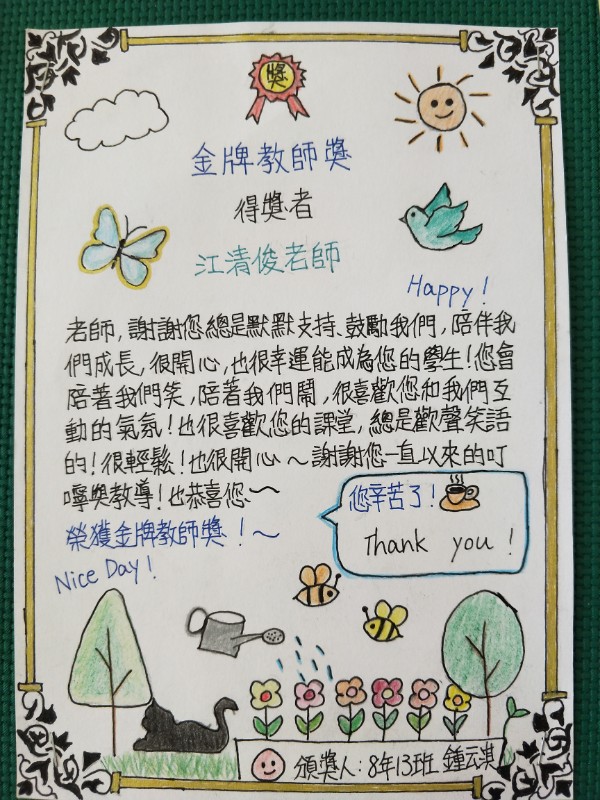 獎
金牌教師獎
得獎者
江清俊老師
Happy!
老師,謝謝您總是默默支持、鼓勵我們,陪伴我
們成長,很開心,也很幸運能成為您的學生!您會
陪著我們笑,陪著我們鬧,很喜歡您和我們互
動的氣氛!也很喜歡您的課堂,總是歡聲笑語
的!很輕鬆!也很開心~謝謝您一直以來的叮
嚀與教導!也恭喜您~
榮獲金牌教師獎!~
Nice Day!
您辛苦了!
Thank you!
頒獎人:8年13班 鍾云淇